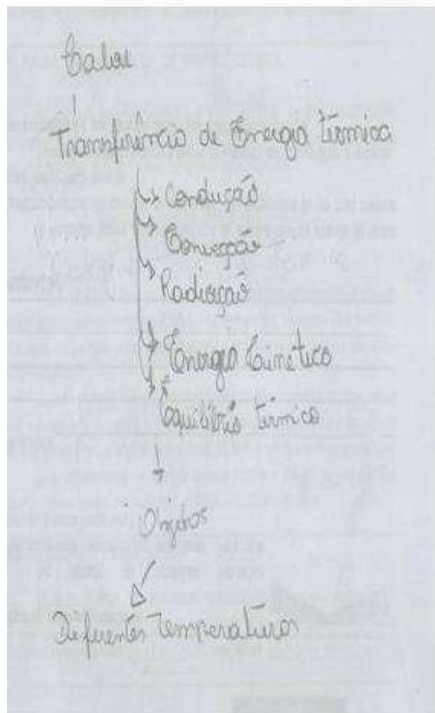 Calor
Transferência de Energia térmica
Condução
Convecção
Radiação
Energia Cinética
Equilíbrio térmico
Objetos
Diferentes Temperaturas